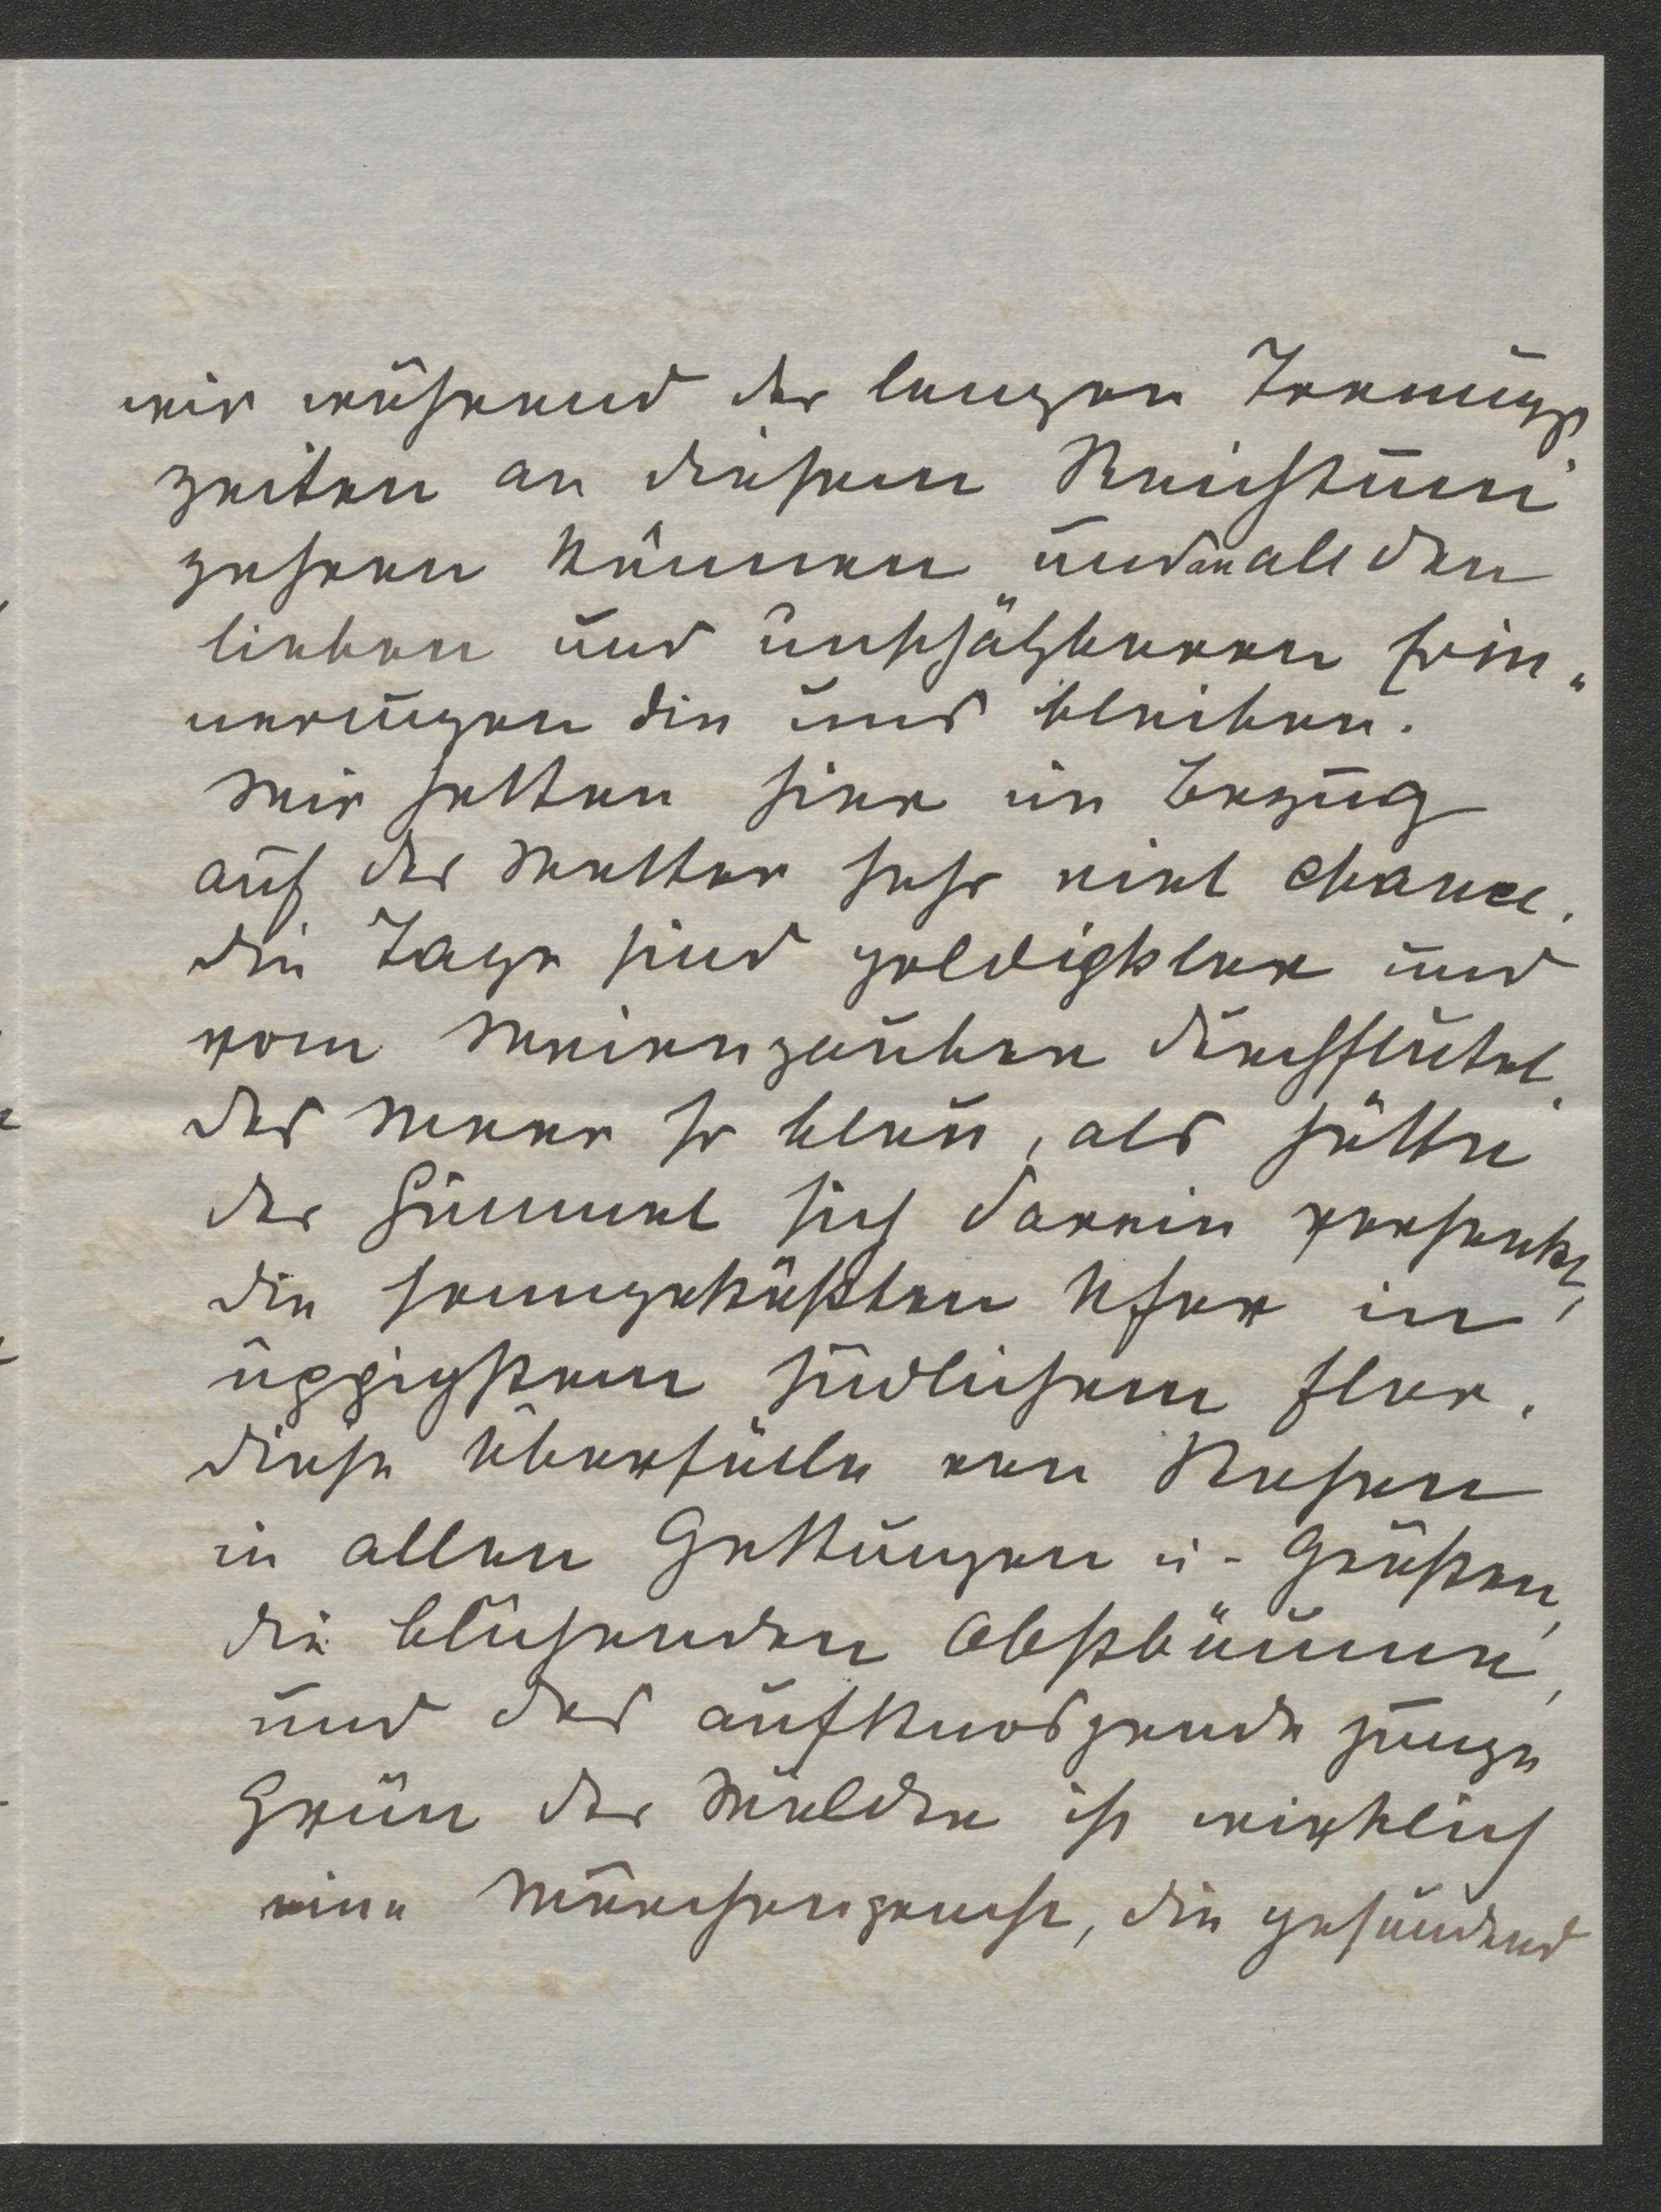 wir während der langen Trennungs
zeiten an diesem Reichtum
zehren können und an all den
lieben und unschätzbaren Erin„
nerungen die uns bleiben.
Wir hatten hier in Bezug
auf das Wetter sehr viel chance.
die Tage sind goldigklar und
vom Maienzauber durchflutet.
das Meer so blau, als hätte
der Himmel sich darein versenkt,
die sonngeküßten Ufer in
üppigstem südlichem Flor.
diese Überfülle von Rosen
in allen Gattungen u. Größen,
die blühenden Obstbäume,
und das aufknospende junge
Grün der Wälder ist wirklich
eine Märchenpracht, die gesundend